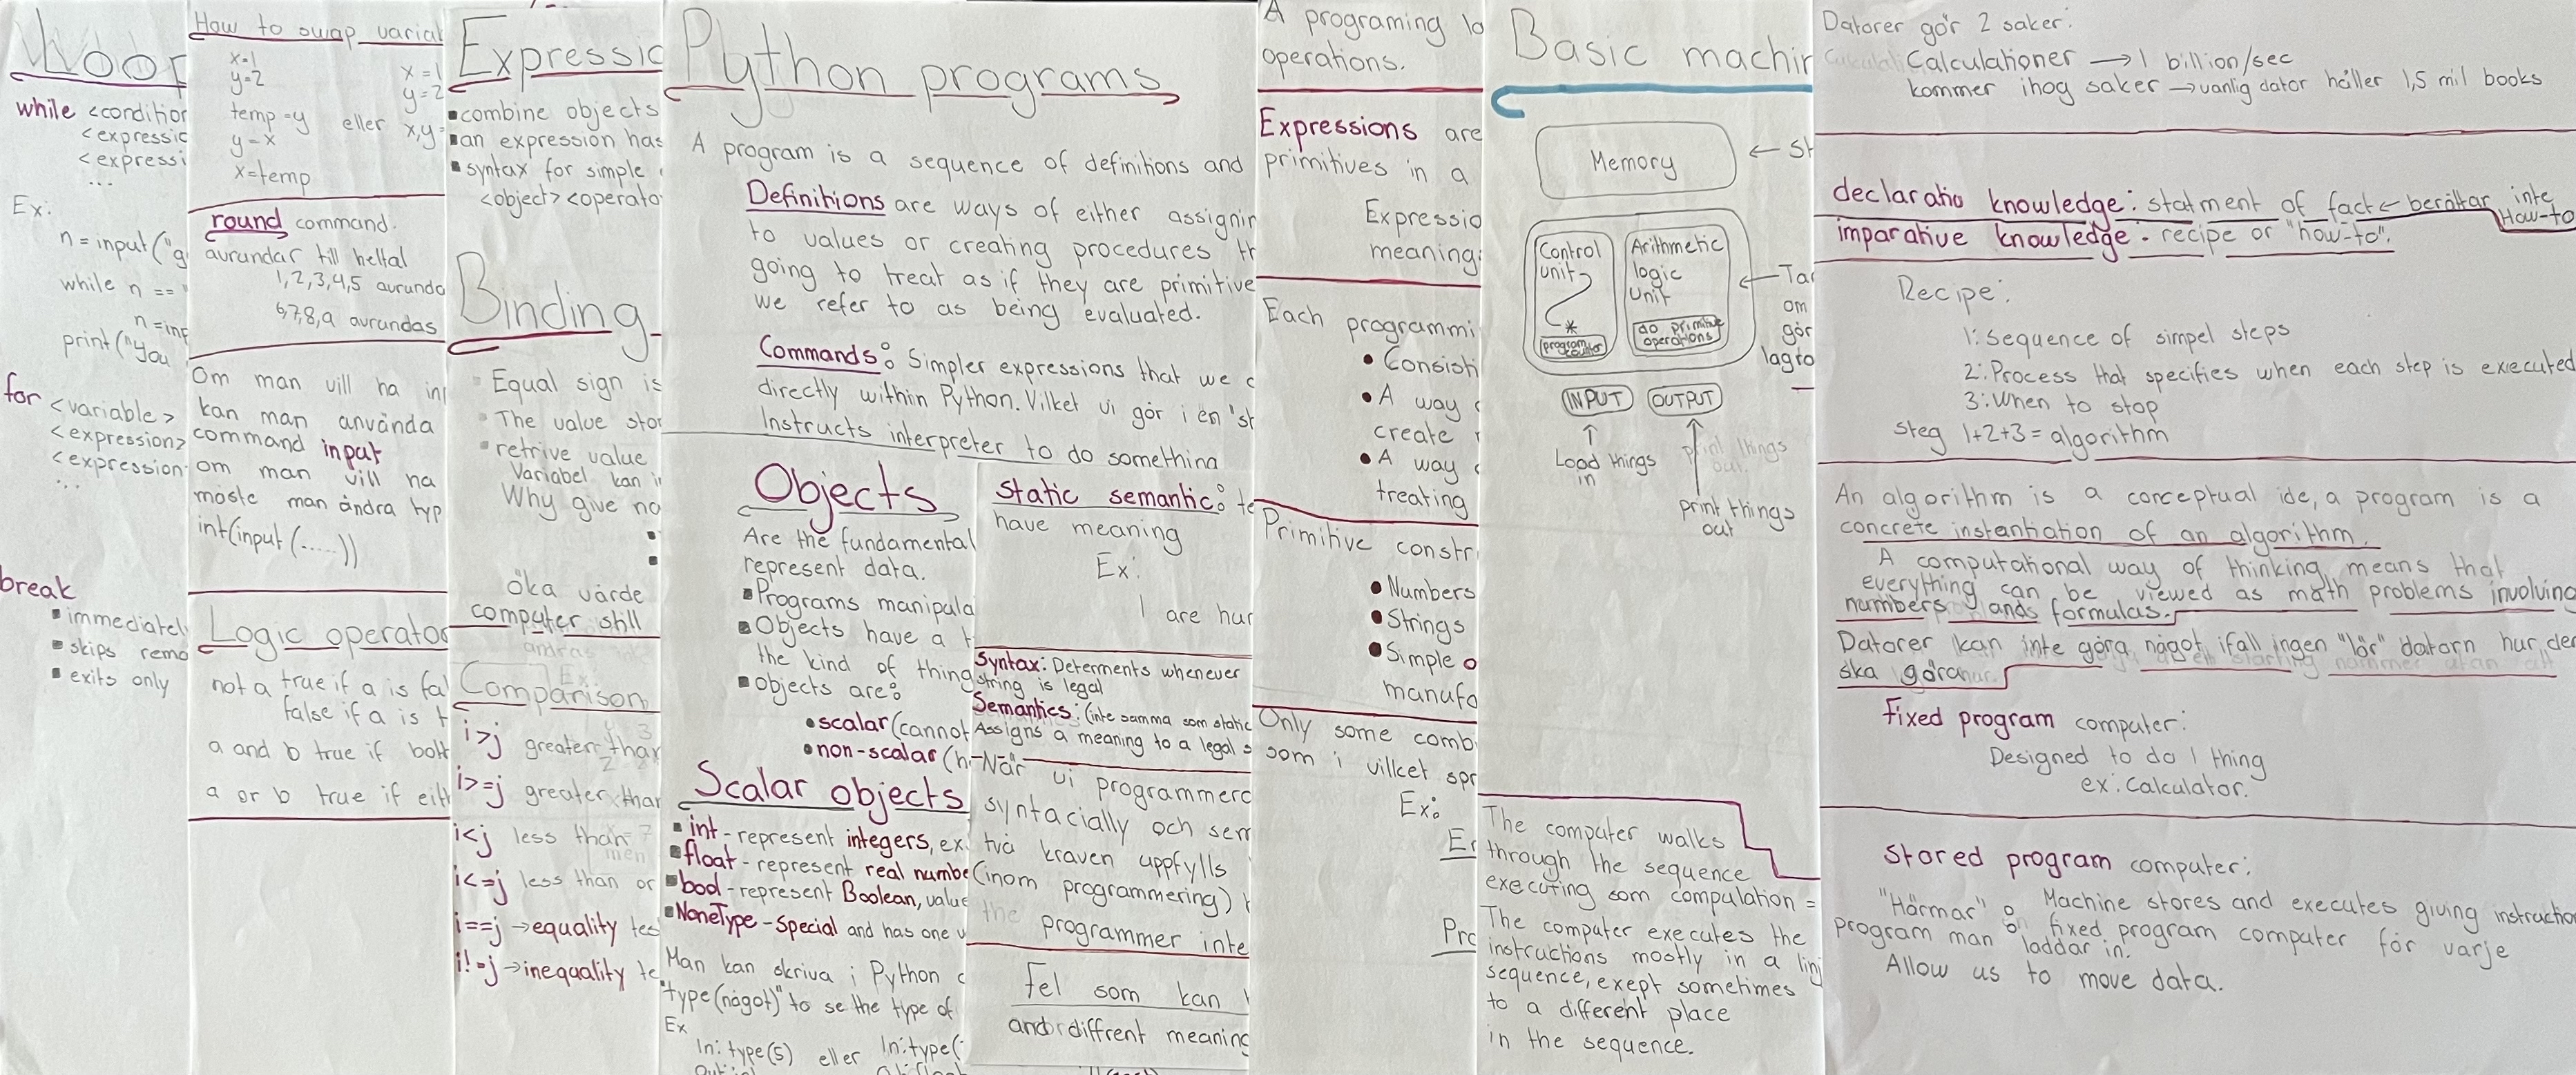 Loop
while <condition
<expressic
<expressi
...
Ex:
n=input("g
while n == "
n=inp
print("You
for <variable>
<expression>
<expression
...
break
immediatel
skips rema
exits only
How to swap variab
x=1
y=2
temp=y
y=x
x=temp
eller
x=1
y=2
x,y=
round command.
avrundar till heltal
1,2,3,4,5 avrunda
6,7,8,9 avrundas
Om man vill ha inp
kan man använda
command input
om man vill ha
måste man ändra typ
int(input(.....))
Logic operator
not a true if a is fal
false if a is t
a and b true if bot
a or b true if eit
Expressio
combine objects
an expression has
syntax for simple
<object> <operato
Binding
Equal sign is
The value stor
retrive value
Variabel kan i
Why give na
öka värde
computer still
Comparison
i>j greater than
i>=j greater than
i<j less than
i<=j less than or
i==j →equality tes
i!=j →inequality te
Python programs
A program is a sequence of definitions and
Definitions are ways of either assignin
to values or creating procedures th
going to treat as if they are primitive
we refer to as being evaluated.
Commands: Simpler expressions that we c
directly within Python. Vilket vi gör i en 'st
Instructs interpreter to do something
Objects
Are the fundamental
represent data.
Programs manipula
Objects have a t
the kind of thing
objects are:
scalar (cannot
non-scalar (h
Scalar objects
int - represent integers, ex.
float - represent real numbe
bool - represent Boolean, value
NoneType - Special and has one v
Man kan skriva i Python
"type(något)" to se the type of
Ex
In: type(5) eller In: type(
static semantic: te
have meaning
Ex:
I are hun
Syntax: Determents whenever
string is legal
Semantics: (inte samma som static
Assigns a meaning to a legal s
När vi programmera
syntacially och sem
två kraven uppfylls
(inom programmering)
the programmer inte
Fel som kan
and diffrent meaning
A programing la
operations.
Expressions are
primitives in a
Expressio
meaning
Each programmi
Consisti
A way
create
A way
treating
Primitive constr
Numbers
Strings
Simple o
manufa
Only some comb
som i vilket spr
Ex:
Er
Pro
Basic machin
Memory
← St
Control
unit
program
counter
Arithmetic
logic
unit
do primitive
operations
← Tar
om
gör
lagra
INPUT
OUTPUT
Load things
in
print things
out.
print things
out
The computer walks
through the sequence
executing som compulation =
The computer executes the
instructions mostly in a linj
sequence, exept sometimes
to a different place
in the sequence.
Datorer gör 2 saker:
Calculationer → 1 billion/sec
kommer ihog saker → vanlig dator håller 1,5 mil books
declaratio knowledge: statment of fact ← berättar inte How-to
imparative knowledge: recipe or "how-to".
Recipe:
1: Sequence of simpel steps
2: Process that specifies when each step is executed
3: When to stop
steg 1+2+3 = algorithm
An algorithm is a conceptual ide, a program is a
concrete instantiation of an algorithm.
A computational way of thinking means that
everything can be viewed as math problems involving
numbers ands formulas.
Datorer kan inte göra något ifall ingen "lär" datorn hur den
ska göra
fixed program computer:
Designed to do 1 thing
ex: Calculator.
Stored program computer:
"Härmar" on Machine stores and executes giving instruction
program man fixed program computer för varje
laddar in.
Allow us to move data.